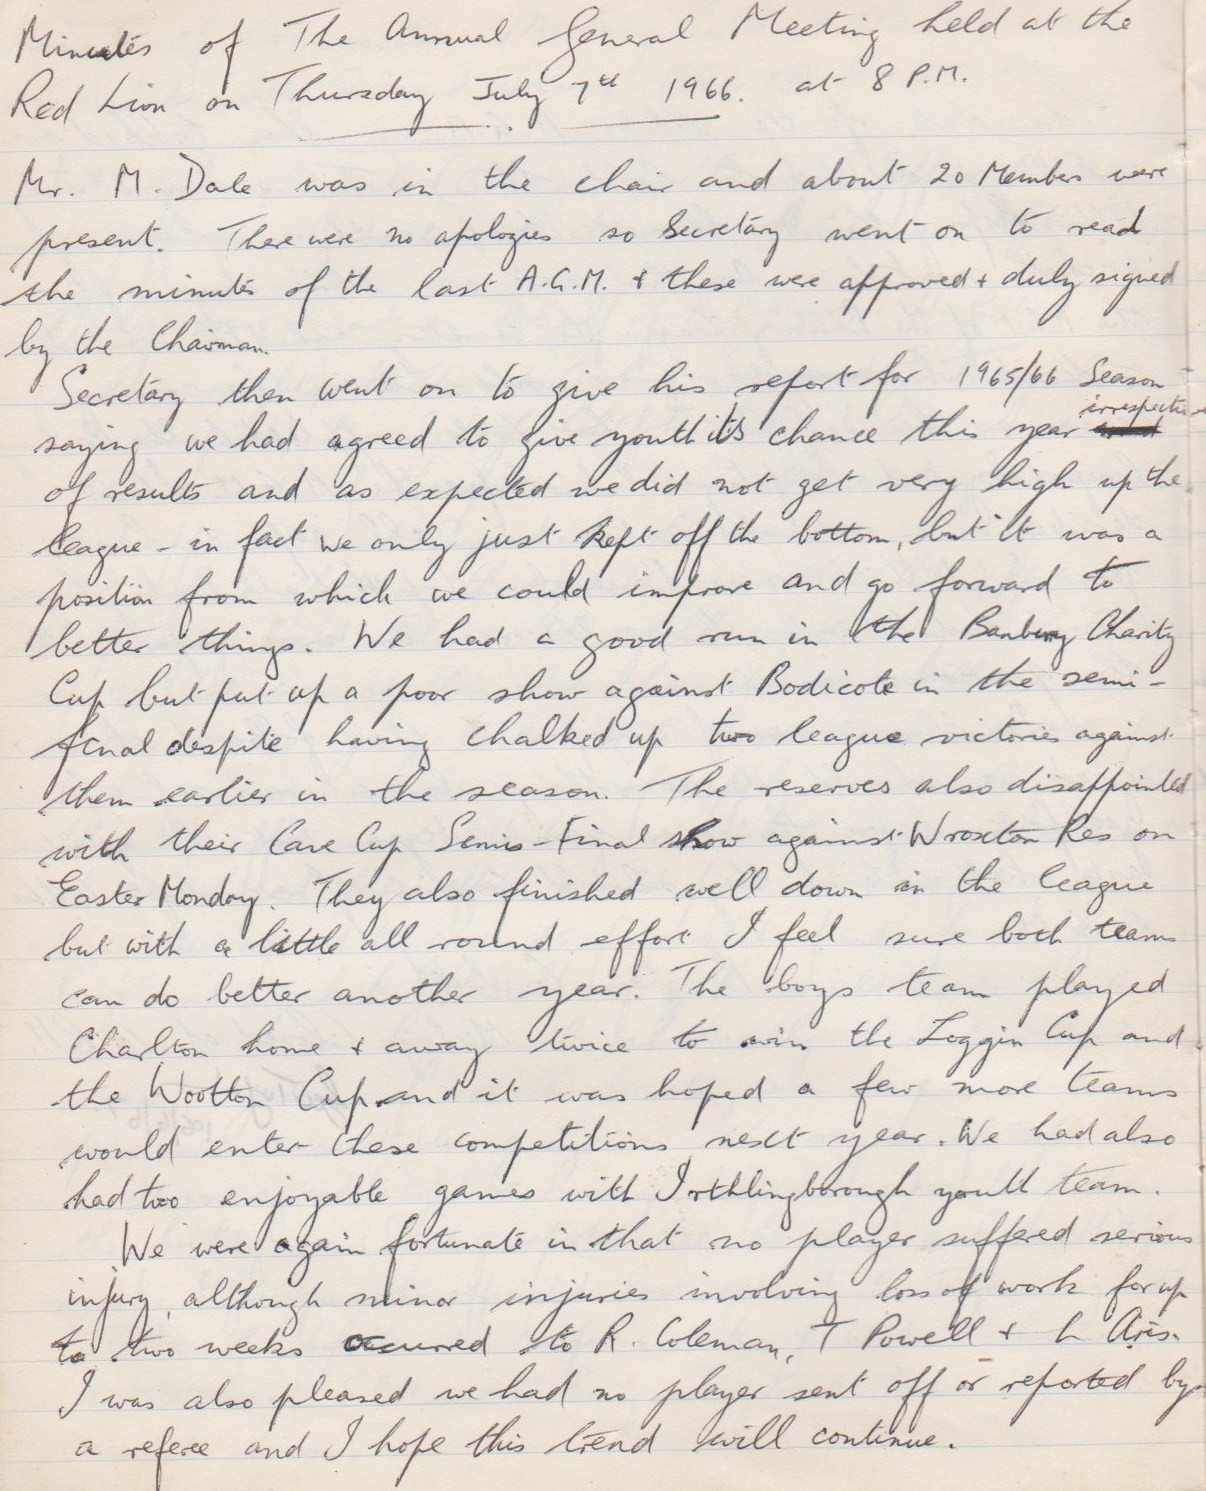 Minutes of The Annual General Meeting held at the
Red Lion on Thursday July 7th 1966. at 8 P.M.
Mr. M. Dale was in the chair and about 20 Members were
present. There were no apologies so Secretary went on to read
the minutes of the last A.G.M. & these were approved & duly signed
by the Chairman.
Secretary then went on to give his report for 1965/66 Season
saying we had agreed to give youth it's chance this year irrespective
of results and as expected we did not get very high up the
league - in fact we only just kept off the bottom, but it was a
position from which we could improve and go forward to
better things. We had a good run in the Banbury Charity
Cup but put up a poor show against Bodicote in the semi-
final despite having chalked up two league victories against
them earlier in the season. The reserves also disappointed
with their Cave Cup Semi-Final show against Wroxton Res on
Easter Monday. They also finished well down in the league
but with a little all round effort I feel sure both teams
can do better another year. The boys team played
Charlton home & away twice to win the Loggin Cup and
the Wootton Cup and it was hoped a few more teams
would enter these competitions next year. We had also
had two enjoyable games with Irthlingborough youth team.
We were again fortunate in that no player suffered serious
injury, although minor injuries involving loss of work for up
to two weeks occurred to R. Coleman, T Powell & L Aris.
I was also pleased we had no player sent off or reported by
a referee and I hope this trend will continue.